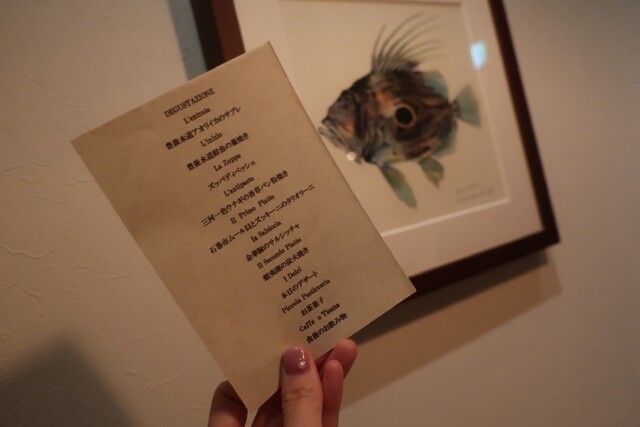 DEGUSTAZIONE
L'entrata
豊後水道アオリイカのサブレ
L'inizio
豊後水道鮮魚の藁焼き
La Zuppa
ズッパディペッシェ
L'antipasto
三河一色ウナギの香草パン粉焼き
Il Primo Piatto
石巻市ムール貝とズッキーニのタリオリーニ
la Salsiccia
金華豚のサルシッチャ
Il Secondo Piatto
蝦夷鹿の炭火焼き
I Dolci
本日のデザート
Piccola Pasticceria
お茶菓子
Caffe o Tisana
食後のお飲み物